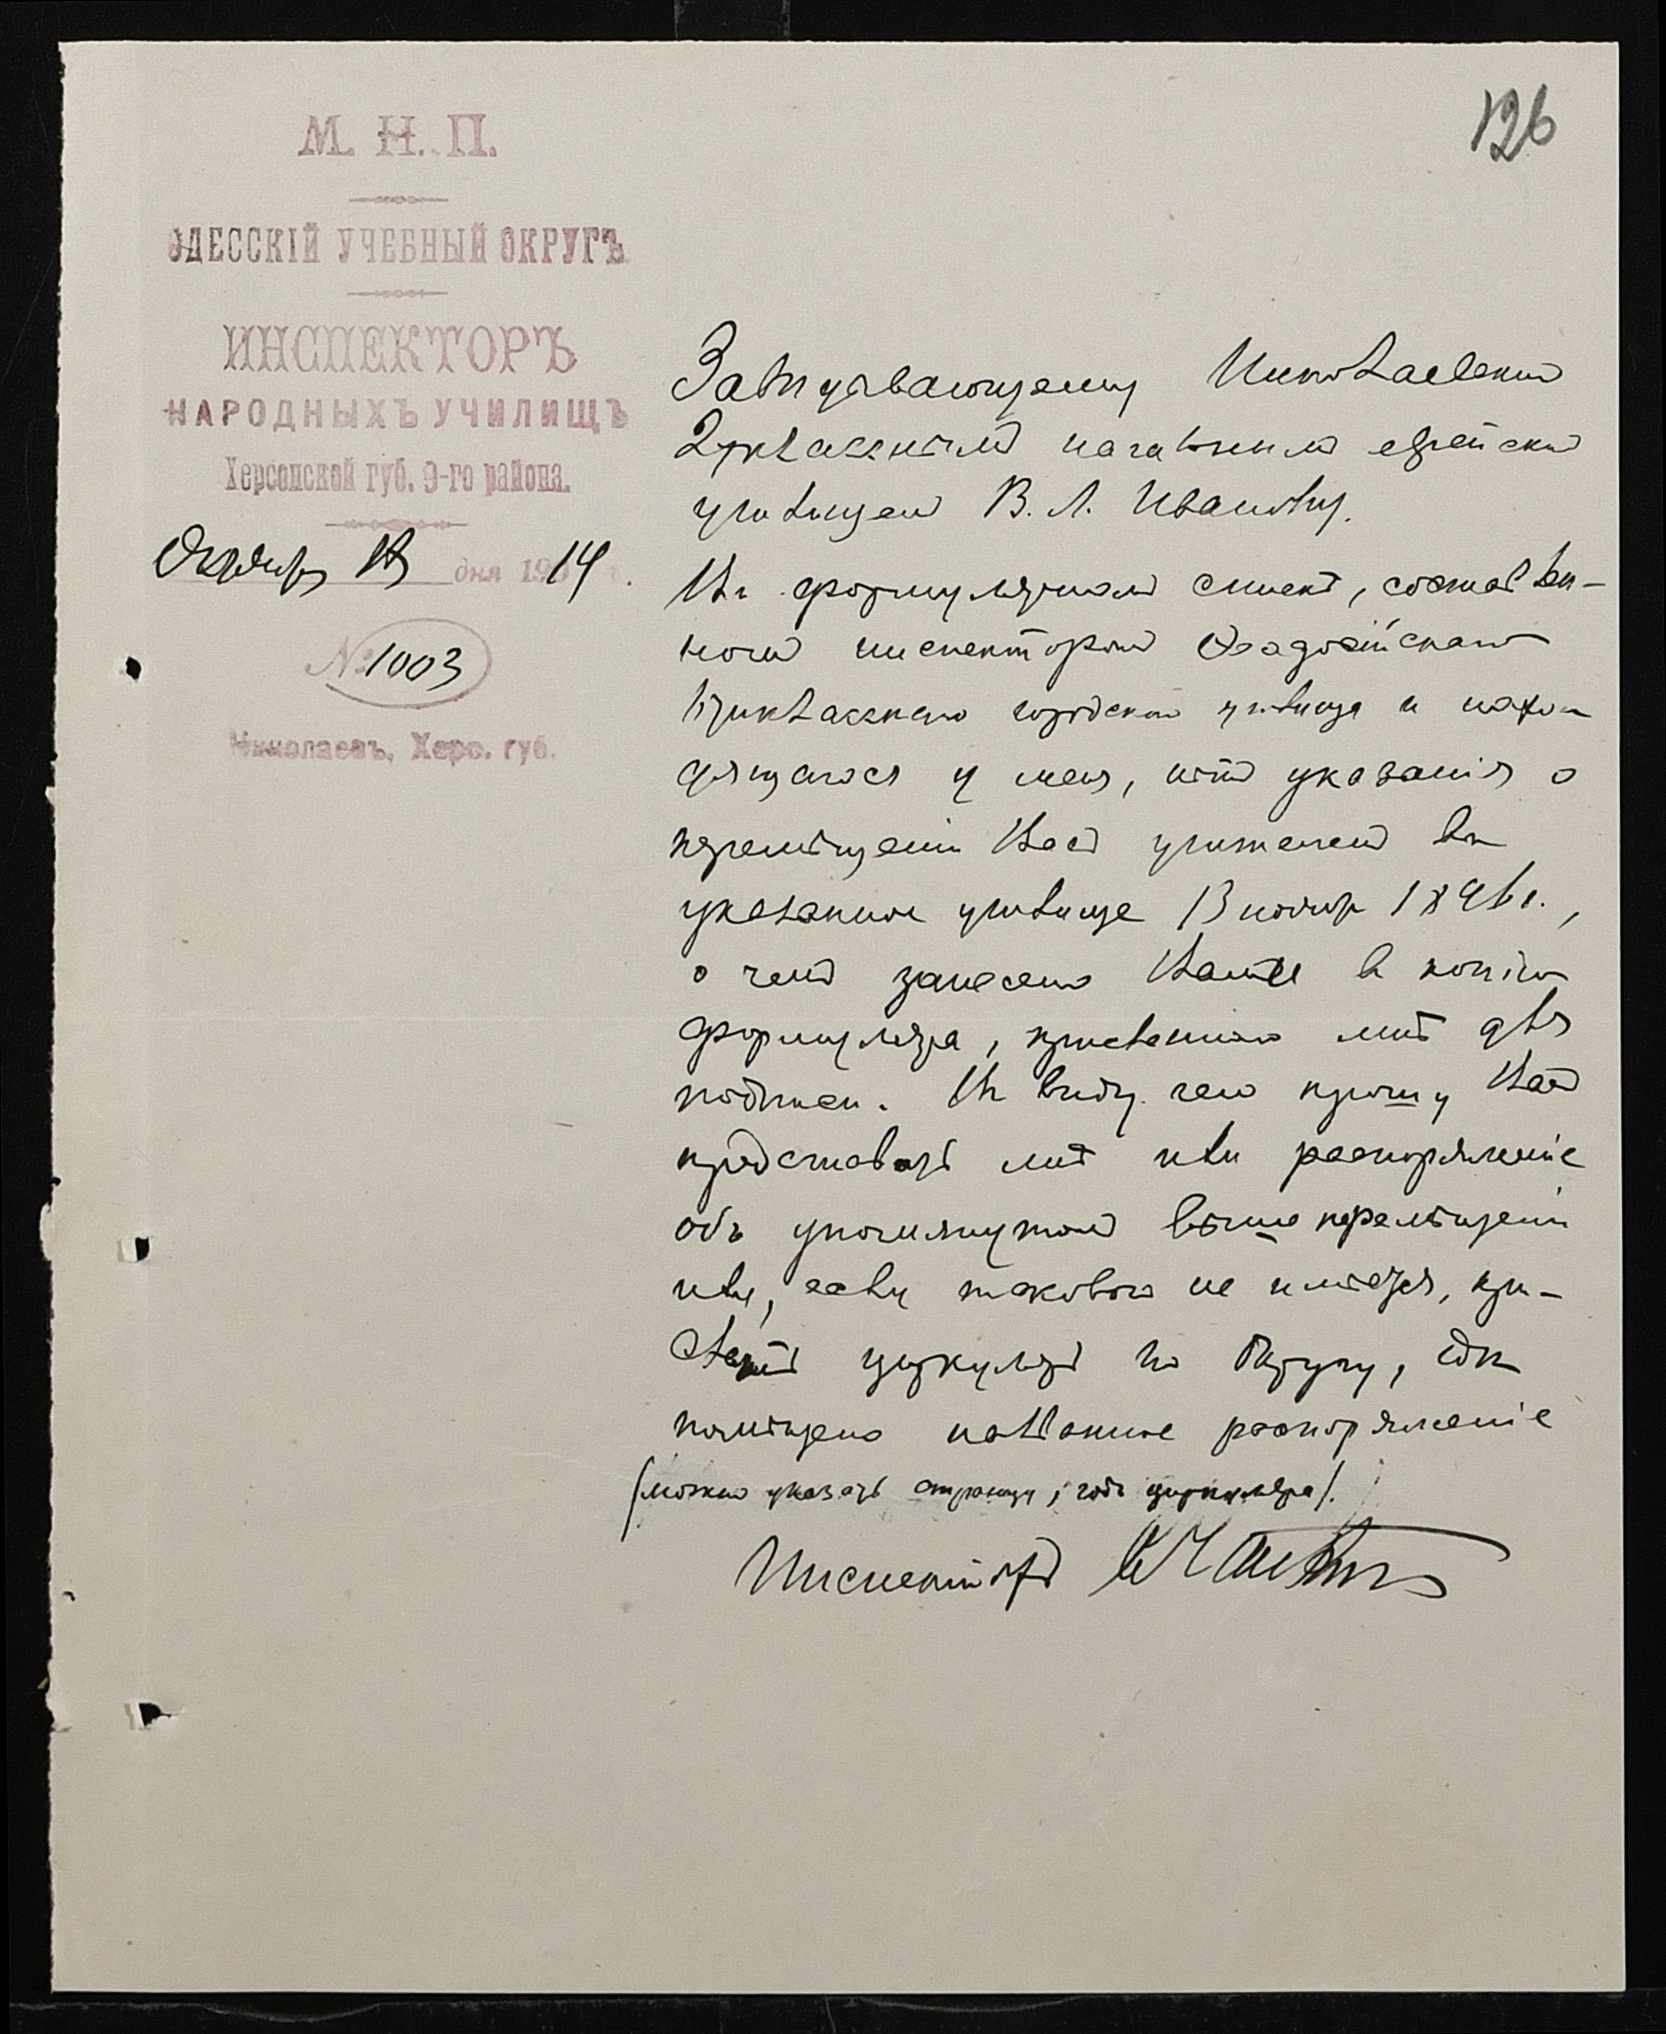 126
М. Н. П.
ОДЕССКІЙ УЧЕБНЫЙ ОКРУГЪ
ИНСПЕКТОРЪ
НАРОДНЫХЪ УЧИЛИЩЪ
Херсонской губ. 9-го района.
дня 190 14 г.
№ 1003
Николаевъ, Херс. губ.
Завѣдывающему Николаевским
2хкласснымъ начальнымъ еврейским
училищем В. Л. Иванову.
Въ формулярном спискѣ, составлен-
ном инспектором
городского училища и нахо
дящагося у меня, нѣтъ указанія о
перемѣщеніи Васъ учителем въ
указанное училище 13 ноября 1896 г.,
о чемъ занесено Вами в копію
формуляра, присланную мнѣ для
подписи. Въ виду чего прошу Васъ
представить мнѣ или распоряженіе
объ упомянутом выше перемѣщеніи
или, если такового не имѣется, при-
слать циркуляръ по Округу, гдѣ
помѣщено названное распоряженіе
(можно указать страницу, годъ циркуляра).
Инспекторъ